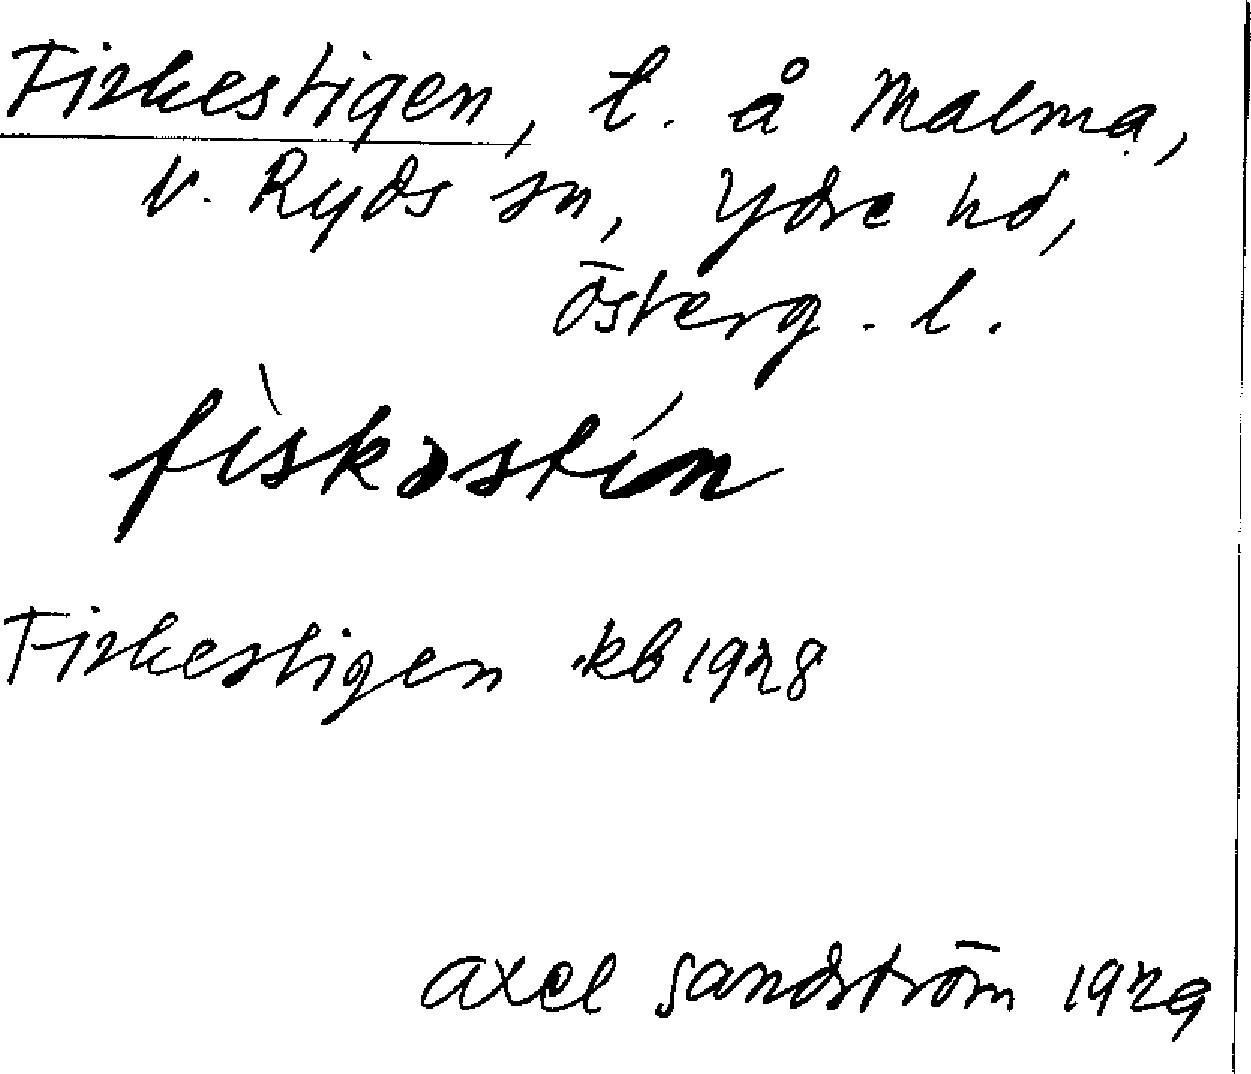 Fiskestigen, t. å Malma,
V. Ryds sn, Ydre hd,
Österg. l.
fìskəstín
Fiskestigen kb 1928
Axel Sandström 1929